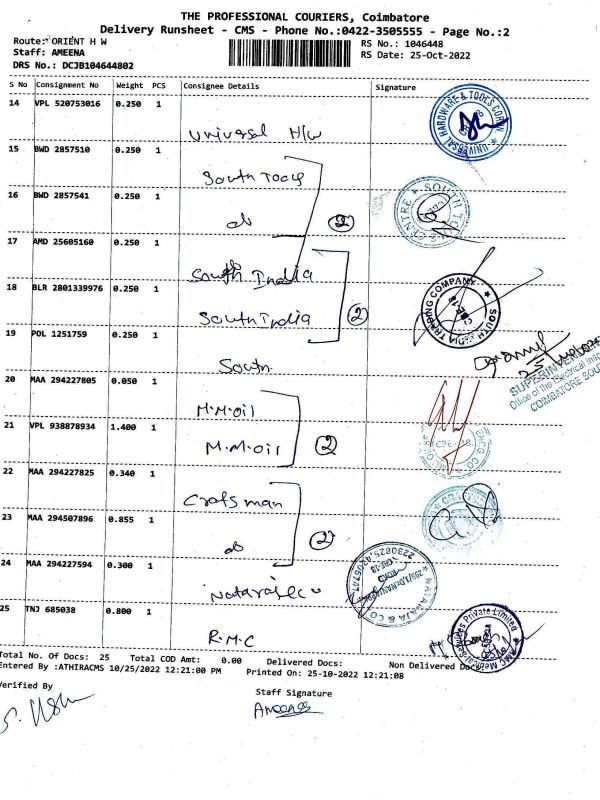 THE PROFESSIONAL COURIERS, Coimbatore
Delivery Runsheet - CMS - Phone No.:0422-3505555 - Page No.:2
Route: ORIENT H W
RS No.: 1046448
Staff: AMEENA
RS Date: 25-Oct-2022
DRS No.: DCJB104644802
S No Consignment No Weight PCS Consignee Details Signature
14 VPL 520753016 0.250 1
Universal H/W
UNIVERSAL HARDWARE & TOOLS CORPN
15 BWD 2857510 0.250 1
South Tools
16 BWD 2857541 0.250 1
do 2
SOUTH TOOLS CENTRE
17 AMD 25605160 0.250 1
South India
18 BLR 2801339976 0.250 1
South India 2
SOUTH INDIA TRADING COMPANY
CBE-18
19 POL 1251759 0.250 1
South
SUPERINTENDENT
Office of the Electrical
COIMBATORE SOUTH
20 MAA 294227805 0.050 1
M.M.oil
21 VPL 938878934 1.400 1
M.M.oil 2
22 MAA 294227825 0.340 1
Crafsman
23 MAA 294507896 0.855 1
do 2
24 MAA 294227594 0.300 1
Nataraj & Co
NATARAJA & CO
25 TNJ 685038 0.800 1
R.M.C
RMC Medical Private Limited
Total No. Of Docs: 25 Total COD Amt: 0.00 Delivered Docs: Non Delivered Docs
Entered By :ATHIRACMS 10/25/2022 12:21:00 PM Printed On: 25-10-2022 12:21:08
Verified By
Staff Signature
Ameena